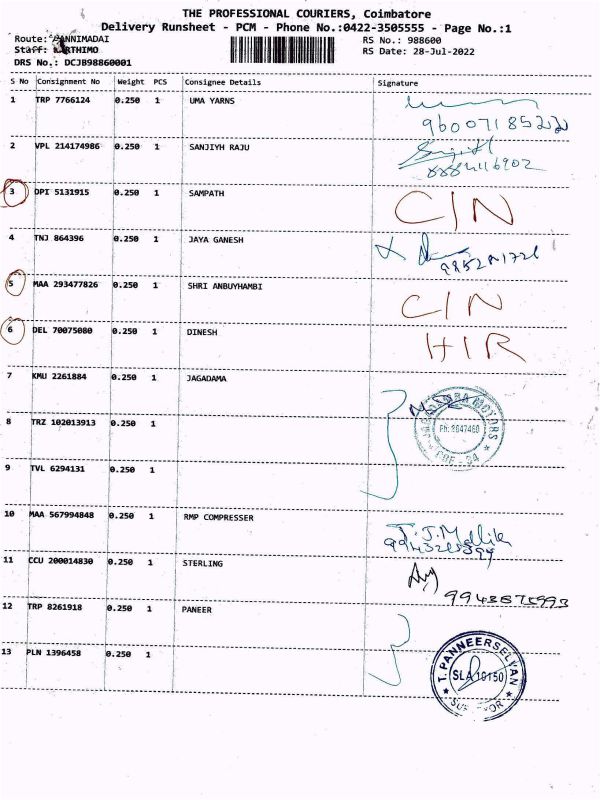 THE PROFESSIONAL COURIERS, Coimbatore
Delivery Runsheet - PCM - Phone No.:0422-3505555 - Page No.:1
Route: PANNIMADAI
RS No.: 988600
Staff: KARTHIMO
RS Date: 28-Jul-2022
DRS No.: DCJB98860001
S No Consignment No Weight PCS Consignee Details Signature
1 TRP 7766124 0.250 1 UMA YARNS
9600718522
2 VPL 214174986 0.250 1 SANJIYH RAJU
3 DPI 5131915 0.250 1 SAMPATH C/N
4 TNJ 864396 0.250 1 JAYA GANESH
5 MAA 293477826 0.250 1 SHRI ANBUYHAMBI C/N
6 DEL 70075080 0.250 1 DINESH H/R
7 KMU 2261884 0.250 1 JAGADAMA
MOTORS
Ph: 2647460
CBE - 24
8 TRZ 102013913 0.250 1
9 TVL 6294131 0.250 1
10 MAA 567994848 0.250 1 RMP COMPRESSER
11 CCU 200014830 0.250 1 STERLING
12 TRP 8261918 0.250 1 PANEER
13 PLN 1396458 0.250 1
T. PANNEERSELVAN
SLA 10150